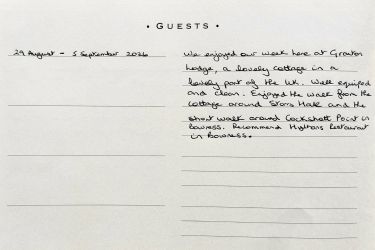 • GUESTS •
29 August - 5 September 2026
We enjoyed our week here at Graston
Lodge, a lovely cottage in a
lovely part of the UK. Well equiped
and clean. Enjoyed the walk from the
cottage around Storrs Hall and the
short walk around Cockshott Point in
Bowness. Recommend Hyltons Restaurant
in Bowness.